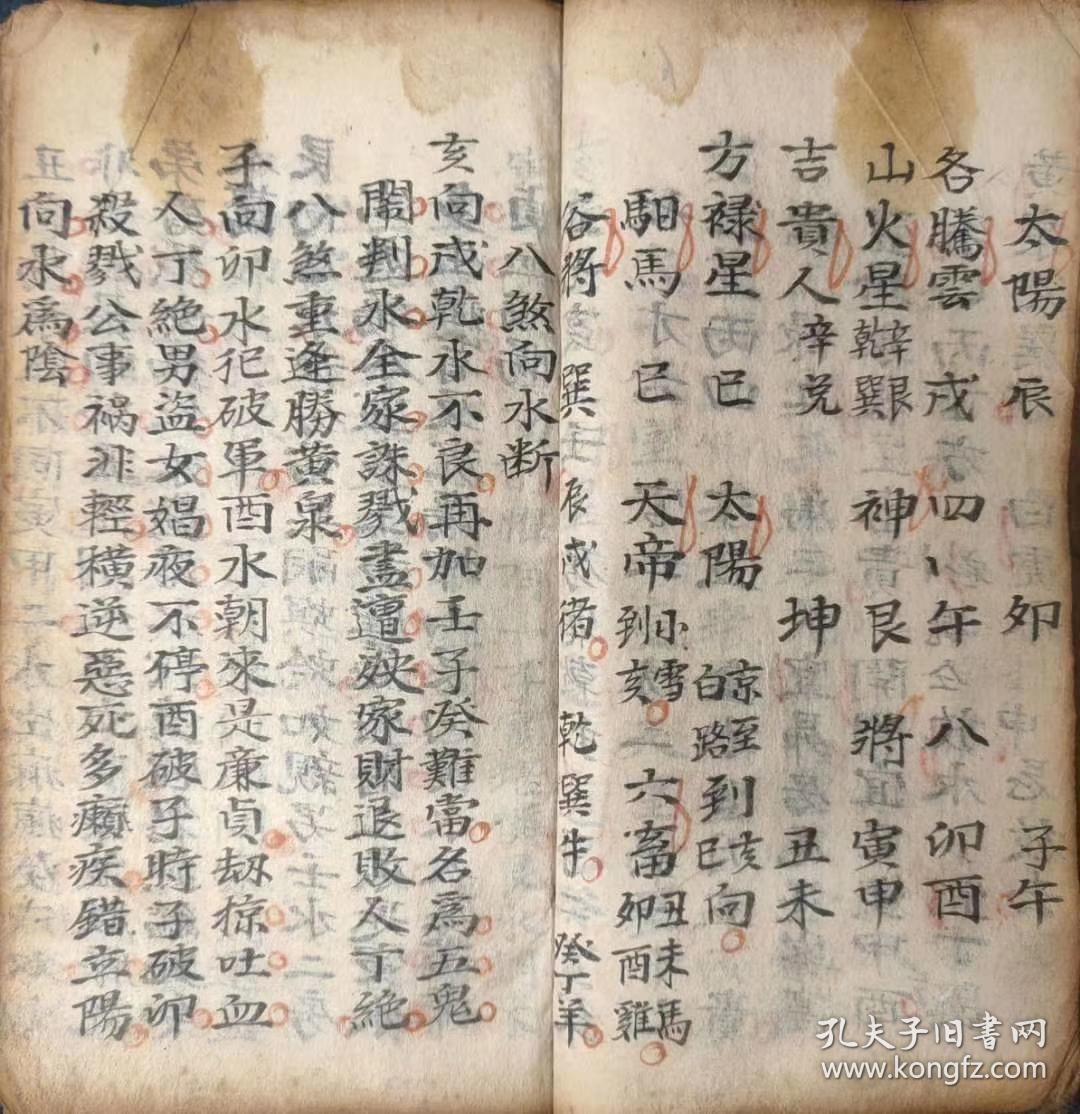 太陽 辰 卯 子午
各騰雲 戌 四 午 八 卯酉
山火星 辛乾 艮巽 神 艮 將 寅申
吉貴人 辛兑 坤 丑未
方禄星 巳 太陽 京至 白路 到 亥巳 向
馹馬 巳 天帝 小雪 到亥 六畜 丑未馬 卯酉雞
谷將 巽 辰戌猪 乾巽牛 癸丁羊
八煞向水断
亥向戌乾水不良再加壬子癸難當名爲五鬼
鬧判水全家誅戮盡遭殃家財退敗人丁絶
八煞重逢勝黄泉
子向卯水犯破軍酉水朝來是廉貞刼掠吐血
人丁絶男盗女娼夜不停酉破子時子破卯
殺戮公事禍非輕横逆惡死多癩疾錯立陽
丑向水爲陰
孔夫子旧書网
www.kongfz.com